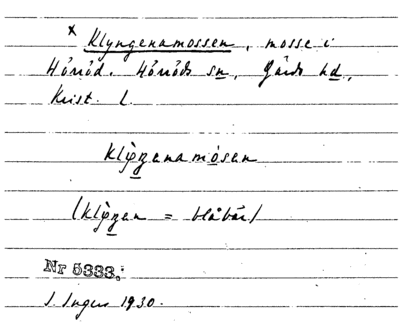 x Klyngenamossen, mosse i
Hörröd. Hörröds sn, Gärds hd,
Krist. l.
klyŋenamosen
(klyŋen = blåbär)
Nr 5333.
I. Ingers 1930.